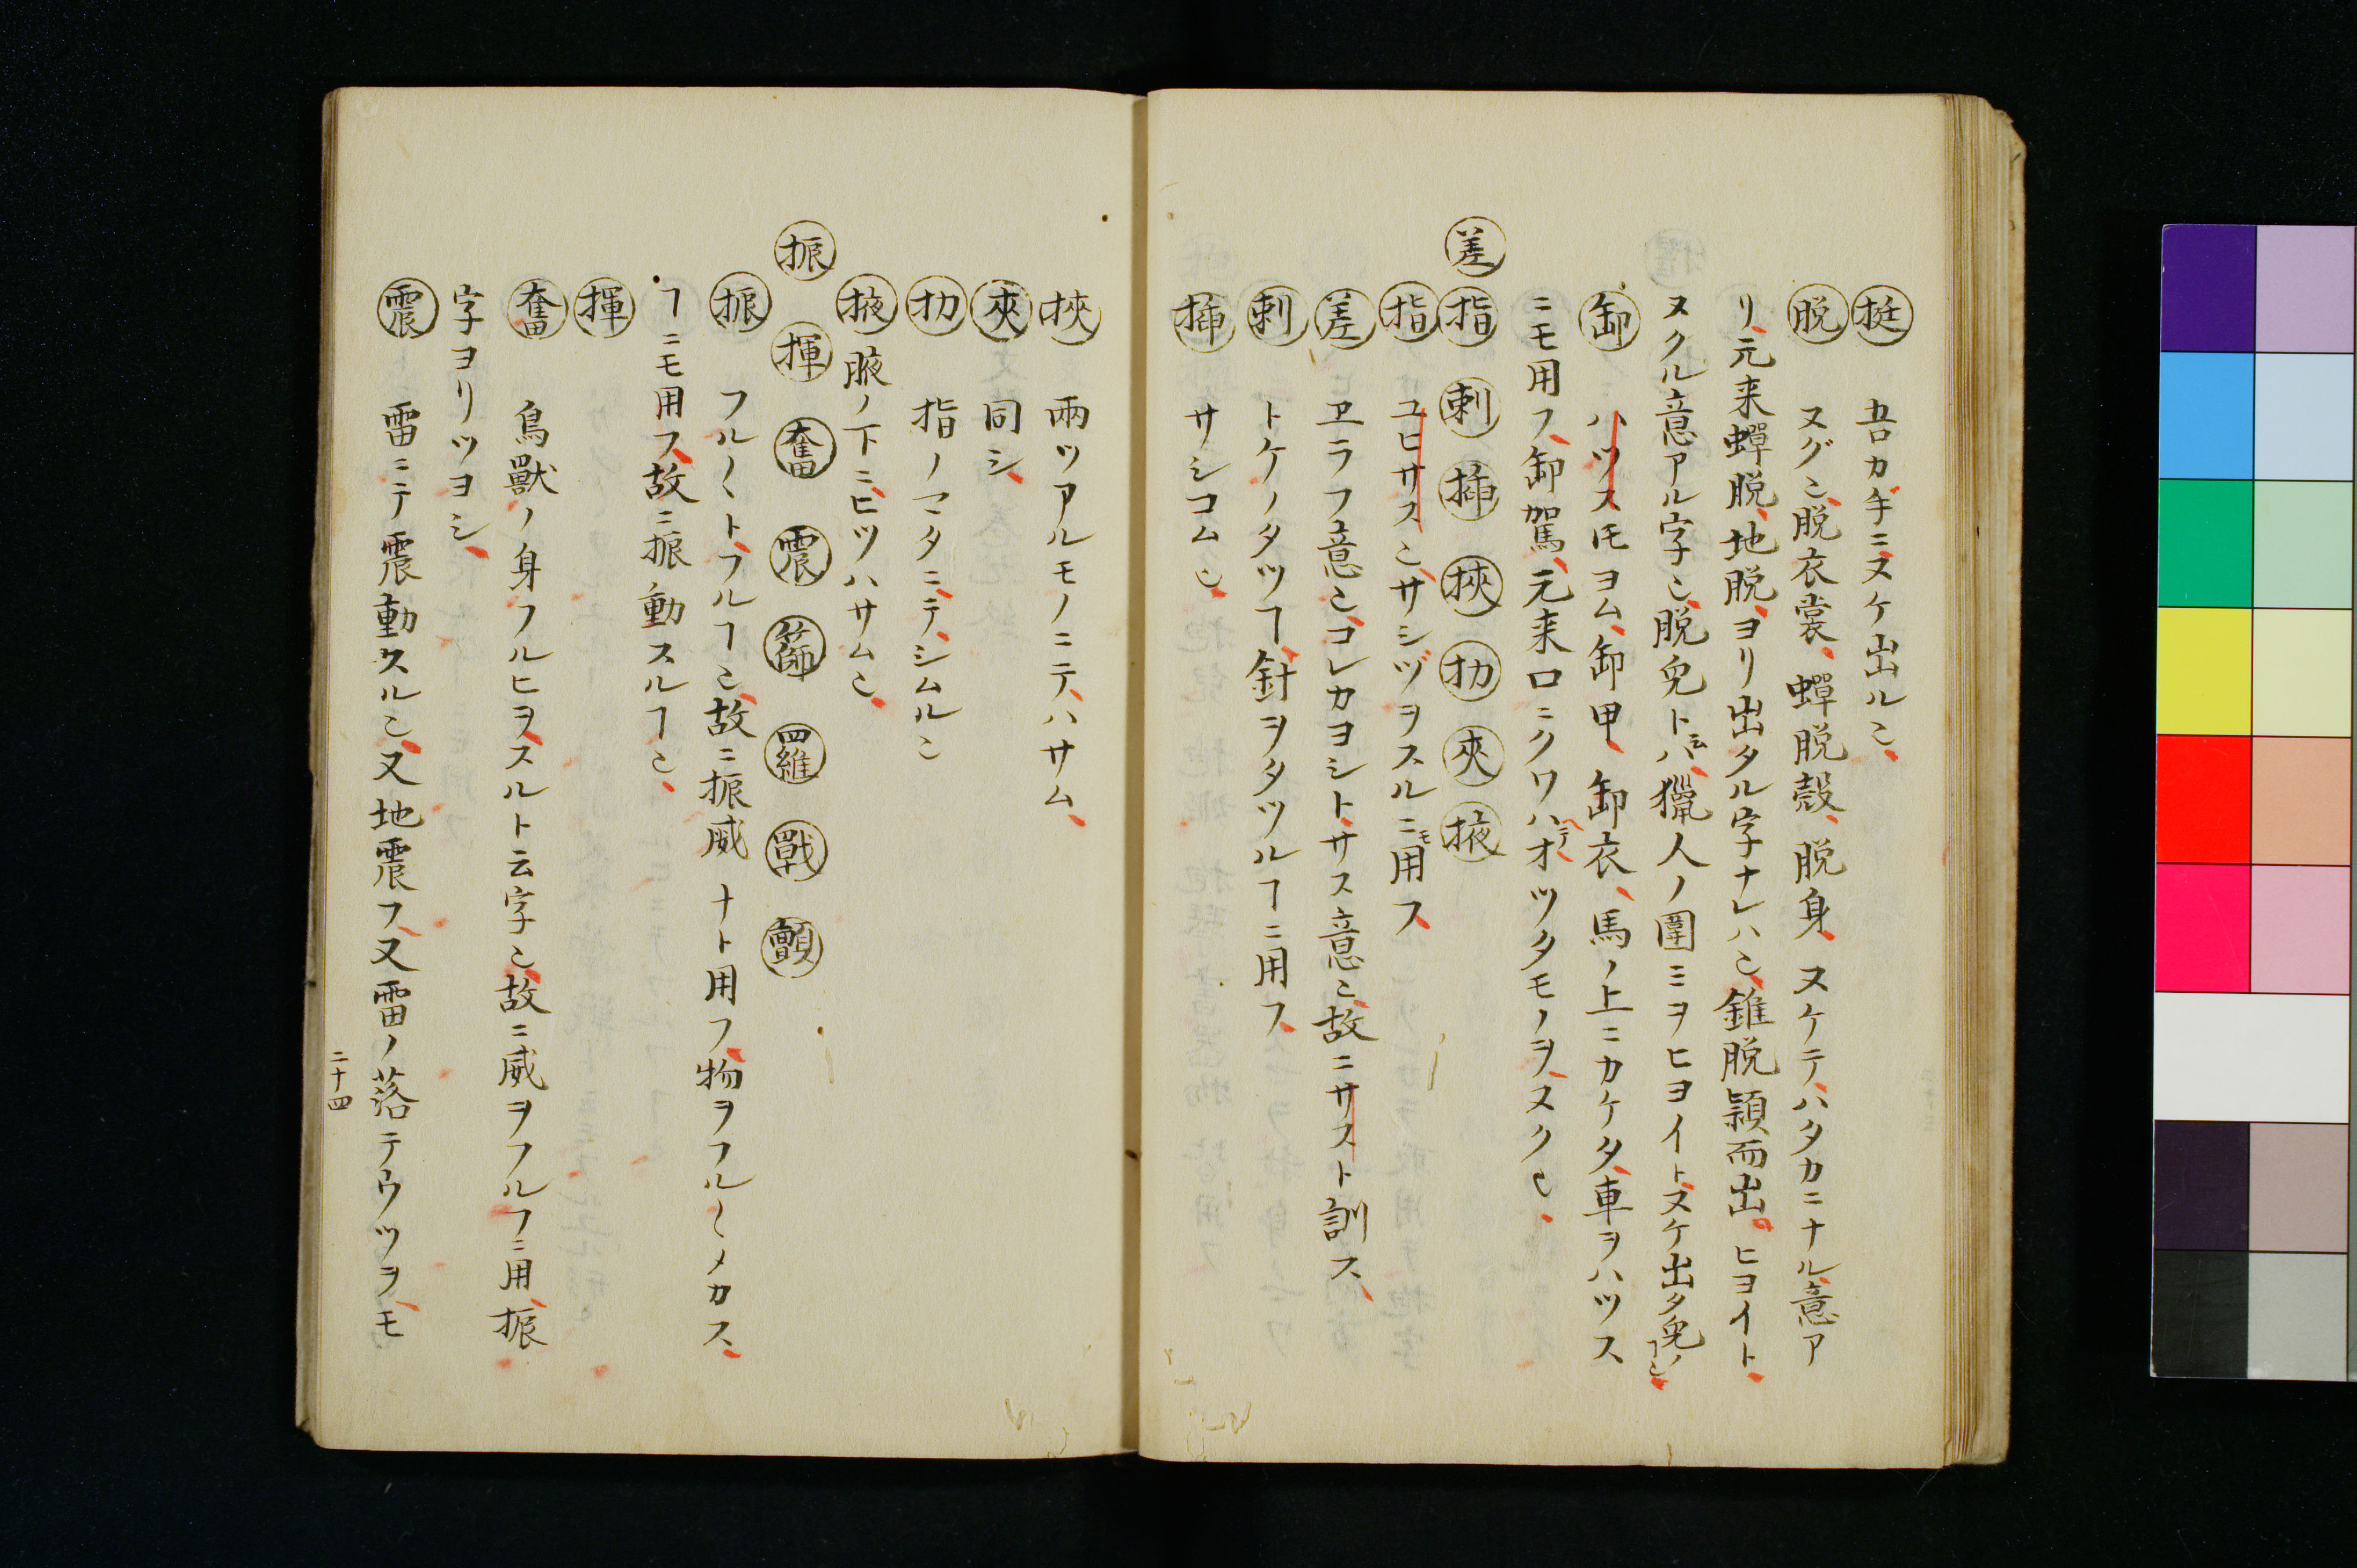 挺 吾カ手ニヌケ出ルヿ、
脱 ヌグヿ、脱衣裳、蟬脱殻、脱身、ヌケテ、ハタカニナル、意ア
リ、元来蟬脱、地脱、ヨリ出タル字ナレハヿ、錐脱穎而出。ヒヨイト、
ヌクル意アル字ヿ、脱兔ト云ハ、獵人ノ圍ミヲヒヨイト、ヌケ出タ兔ノヿヿ、
卸 ハツス𪜈ヨム、卸甲、卸衣、馬ノ上ニカケタ、車ヲハツス
ニモ用フ、卸駕、元来口ニクワハヘテオツタモノヲ、ヌクヿ、
差 指 刺 挿 挾 扐 夾 掖
指 ユヒサスヿ、サシヅヲスルニモ用フ、
差 ヱラフ意ヿ、コレカヨシト、サス意ヿ、故ニサスト訓ス、
刺 トケノタツヿ、針ヲタツルヿニ用フ、
挿 サシコムヿ、
挾 兩ツアルモノニテ、ハサム、
夾 同シ、
扐 指ノマタニテ、シムルヿ
掖 腋ノ下ニ、ヒツハサムヿ、
振 揮 奮 震 篩 羅 戰 顫
振 フル〱ト、フルヿヿ、故ニ振威 ナト用フ、物ヲフル〱メカス、
ヿニモ用フ、故ニ振動スルヿヿ、
揮
奮 鳥獸ノ身フルヒヲ、スルト云字ヿ、故ニ威ヲフルフニ用、振
字ヨリツヨシ、
震 雷ニテ震動スルヿ、又地震フ、又雷ノ落テウツヲ、モ
二十四